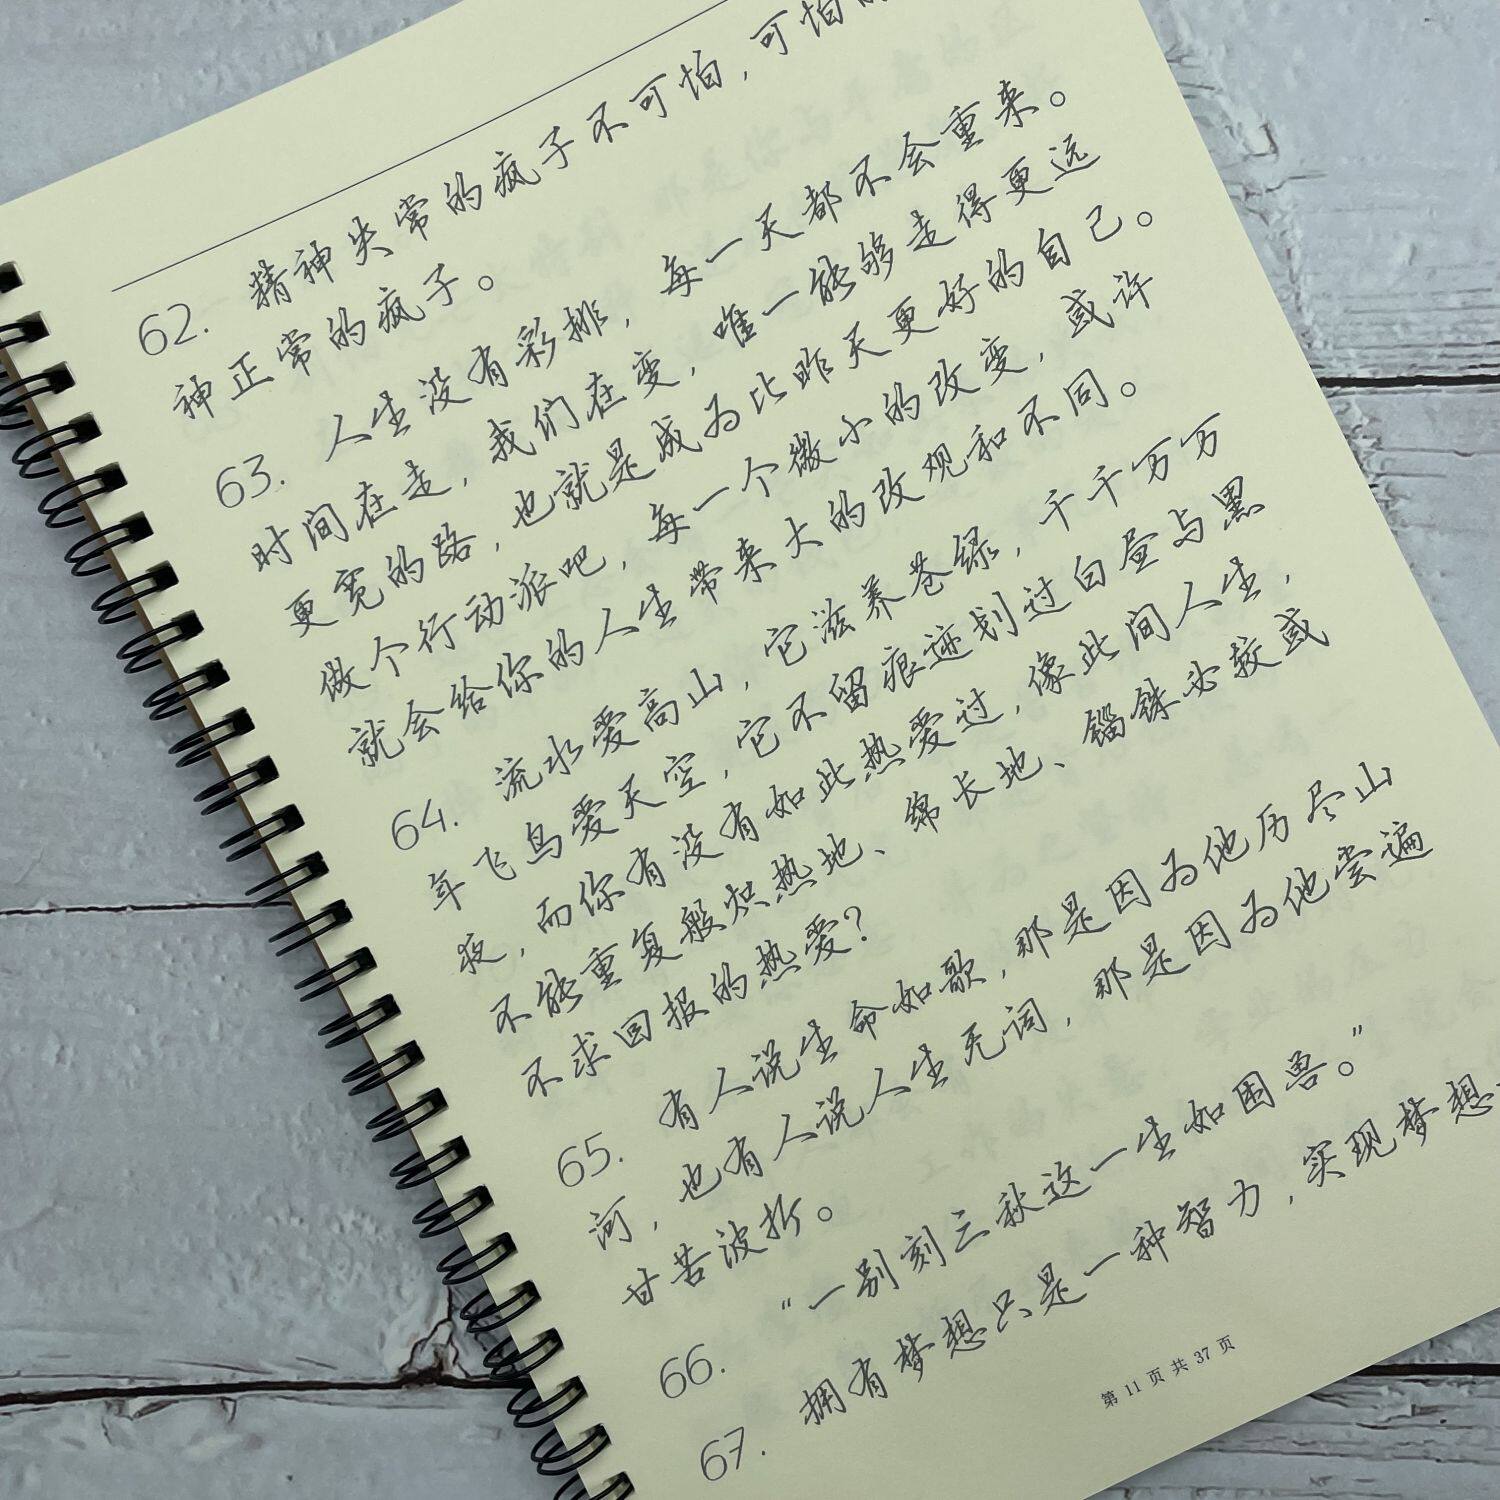 62. 精神失常的疯子不可怕,可怕
神正常的疯子。
63. 人生没有彩排,每一天都不会重来。
时间在走,我们在变,唯一能够走得更远
更宽的路,也就是成为比昨天更好的自己。
做个行动派吧,每一个微小的改变,或许
就会给你的人生带来大的改观和不同。
64. 流水爱高山,它滋养苍绿,千千万万
年飞鸟爱天空,它不留痕迹划过白昼与黑
夜,而你有没有如此热爱过,像此间人生,
不能重复般炽热地、绵长地、锱铢必较或
不求回报的热爱?
65. 有人说生命如歌,那是因为他历尽山
河,也有人说人生无词,那是因为他尝遍
甘苦波折。
66. “一别刻三秋这一生如困兽。”
67. 拥有梦想只是一种智力,实现梦想
第 11 页 共 37 页